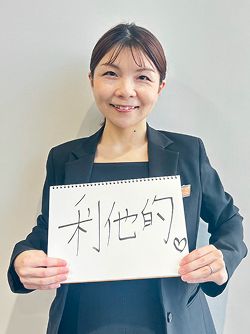 利他的♡